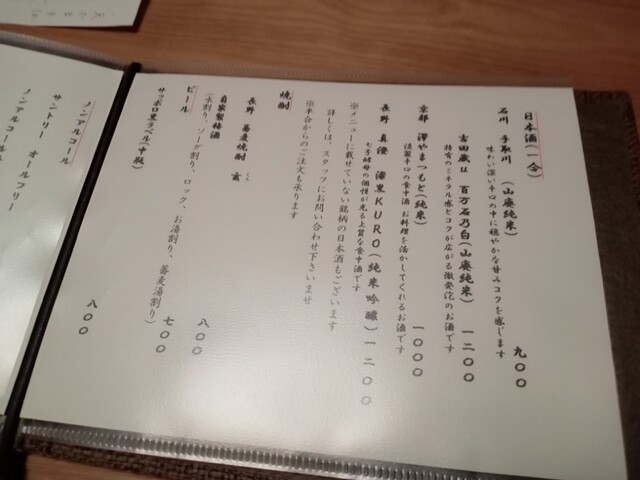 日本酒(一合)
石川 手取川 (山廃純米) 九〇〇
味わい深い辛口の中に穏やかな甘みコクを感じます
吉田蔵u 百万石乃白(山廃純米) 一二〇〇
特有のミネラル感とコクが広がる微発泡のお酒です
京都 澤やまつもと(純米) 一〇〇〇
淡麗辛口の食中酒 お料理を活かしてくれるお酒です
長野 真澄 漆黒KURO(純米吟醸) 一二〇〇
七号酵母の個性が光る上質な食中酒です
※メニューに載せていない銘柄の日本酒もございます
詳しくは、スタッフにお問い合わせ下さいませ
※半合からのご注文も承ります
焼酎
長野 蕎麦焼酎
自家製梅酒 八〇〇
(水割り、ソーダ割り、ロック、お湯割り、蕎麦湯割り)
ビール
サッポロ黒ラベル(中瓶) 七〇〇
ノンアルコール
サントリー オールフリー 八〇〇